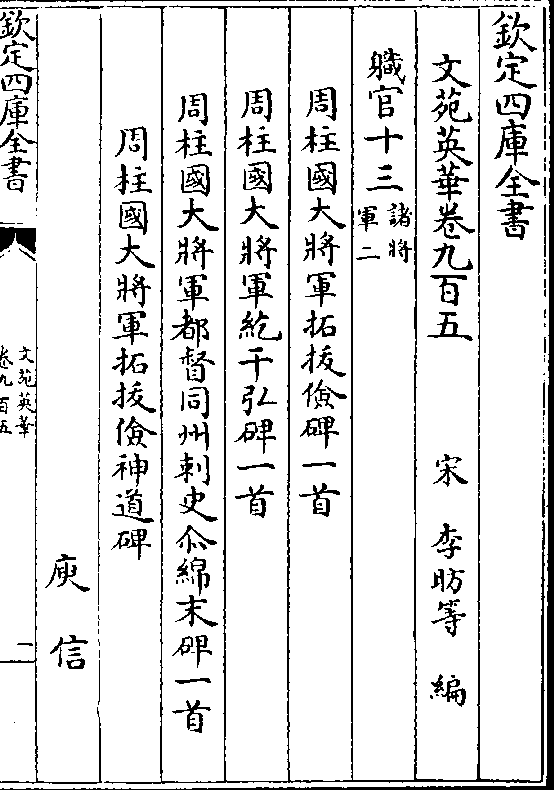 欽定四庫全書
文苑英華卷九百五
宋 李昉等 編
職官十三 諸將軍二
周柱國大將軍拓拔儉碑一首
周柱國大將軍紇干弘碑一首
周柱國大將軍都督同州刺史尒綿末碑一首
周柱國大將軍拓拔儉神道碑
庾信
欽定四庫全書
文苑英華
卷九百五
一